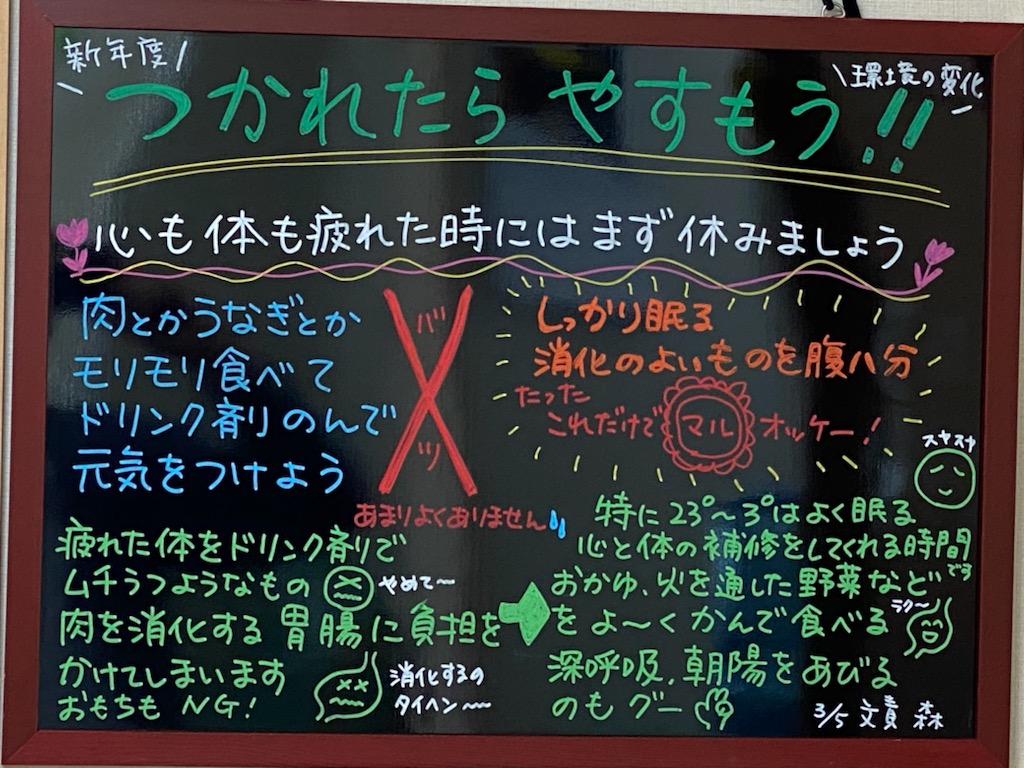 新年度
環境の変化
つかれたら やすもう!!
心も体も疲れた時にはまず休みましょう
肉とかうなぎとか
モリモリ食べて
ドリンク剤のんで
元気をつけよう
バツ
あまりよくありません
疲れた体をドリンク剤で
ムチうつようなもの
やめて〜
肉を消化する胃腸に負担を
かけてしまいます
おもちも NG!
消化するの
タイヘン〜
しっかり眠る
消化のよいものを腹八分
たった
これだけで マル オッケー!
スヤスヤ
特に23°〜3°はよく眠る
心と体の補修をしてくれる時間
です
おかゆ、火を通した野菜など
をよ〜くかんで食べる
ラク〜
深呼吸、朝陽をあびる
のもグー
3/5 文責 森